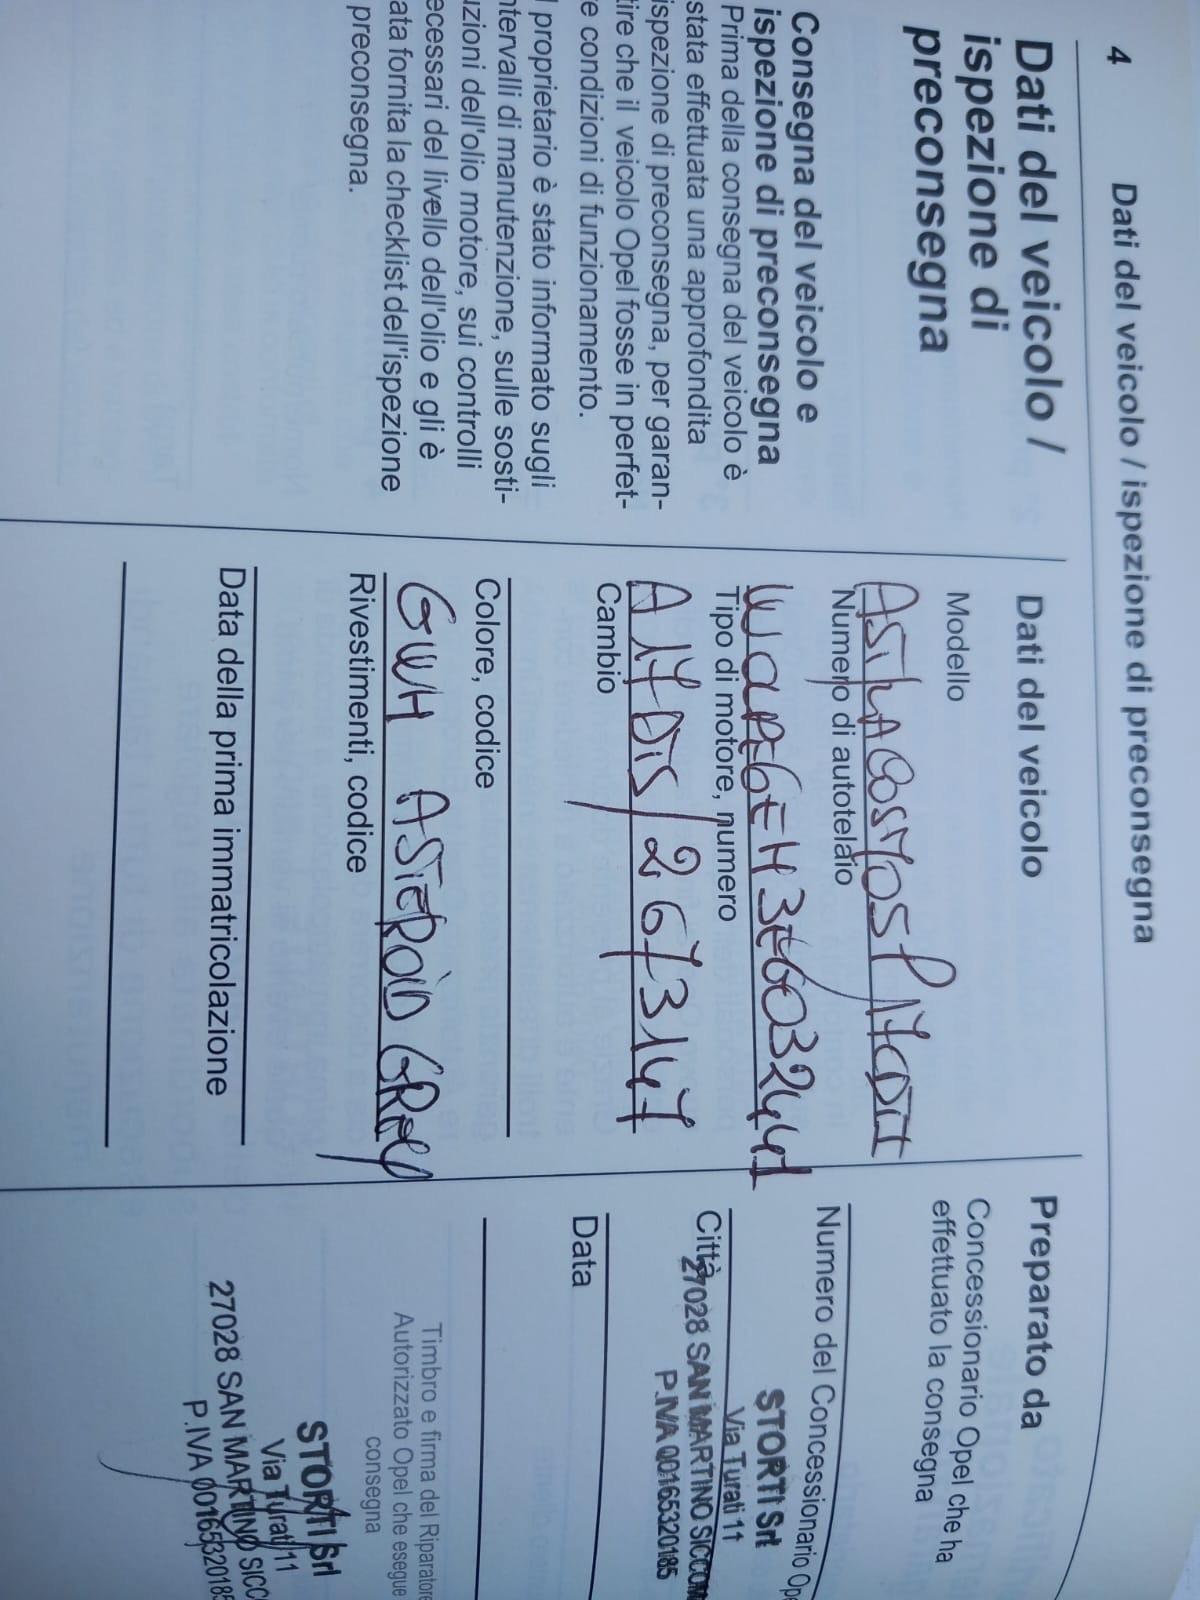 4 Dati del veicolo / ispezione di preconsegna
Dati del veicolo /
ispezione di
preconsegna
Consegna del veicolo e
ispezione di preconsegna
Prima della consegna del veicolo è
stata effettuata una approfondita
ispezione di preconsegna, per garan-
tire che il veicolo Opel fosse in perfet-
e condizioni di funzionamento.
l proprietario è stato informato sugli
ntervalli di manutenzione, sulle sosti-
uzioni dell'olio motore, sui controlli
ecessari del livello dell'olio e gli è
ata fornita la checklist dell'ispezione
preconsegna.
Dati del veicolo
Modello
Numero di autotelaio
Tipo di motore, numero
A17DTS/2673147
Cambio
Colore, codice
GWH ASTEROID GREY
Rivestimenti, codice
Data della prima immatricolazione
Preparato da
Concessionario Opel che ha
effettuato la consegna
Numero del Concessionario Ope
STORTI Srl
Via Turati 11
Città
27028 SAN MARTINO SICCOM
P.IVA 00165320185
Data
Timbro e firma del Riparatore
Autorizzato Opel che esegue
consegna
STORTI Srl
Via Turati 11
27028 SAN MARTINO SICC
P.IVA 00165320185